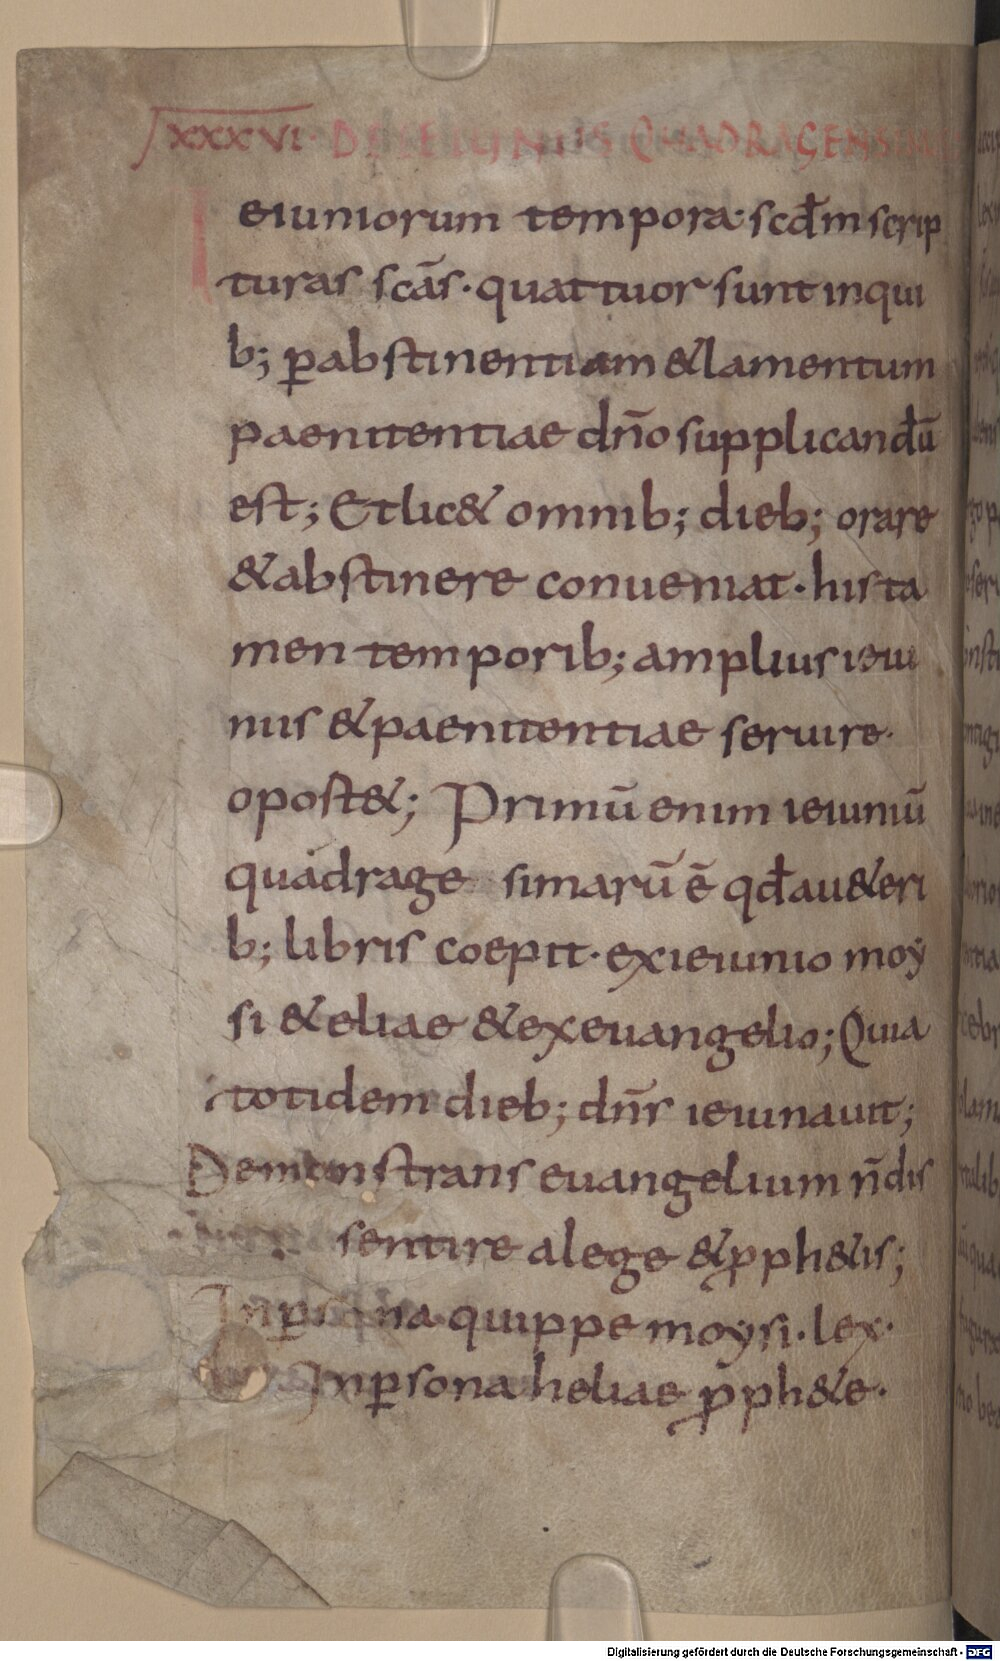 XXXVI · DE IEIUNIIS QUADRAGENSIM
Ieiuniorum tempora · scđm scrip
turas scās · quattuor sunt in qui
b; ꝑ abstinentiam & lamentum
paenitentiae dn̄o supplicandū
est; Et lic& omnib; dieb; orare
& abstinere conueniat · his ta
men temporib; amplius ieiu
niis & paenitentiae seruire ·
oport&; Primū enim ieiuniū
quadrage simarū ē qđ a u&eri
b; libris coepit · ex ieiunio moy
si & eliae & ex euangelio; Quia
totidem dieb; dn̄s ieiunauit;
Demonstrans euangelium n̄ dis
sentire a lege & ꝓph&is;
In ꝑsona quippe moysi · lex ·
In ꝑsona heliae ꝓph&e ·
Digitalisierung gefördert durch die Deutsche Forschungsgemeinschaft - DFG